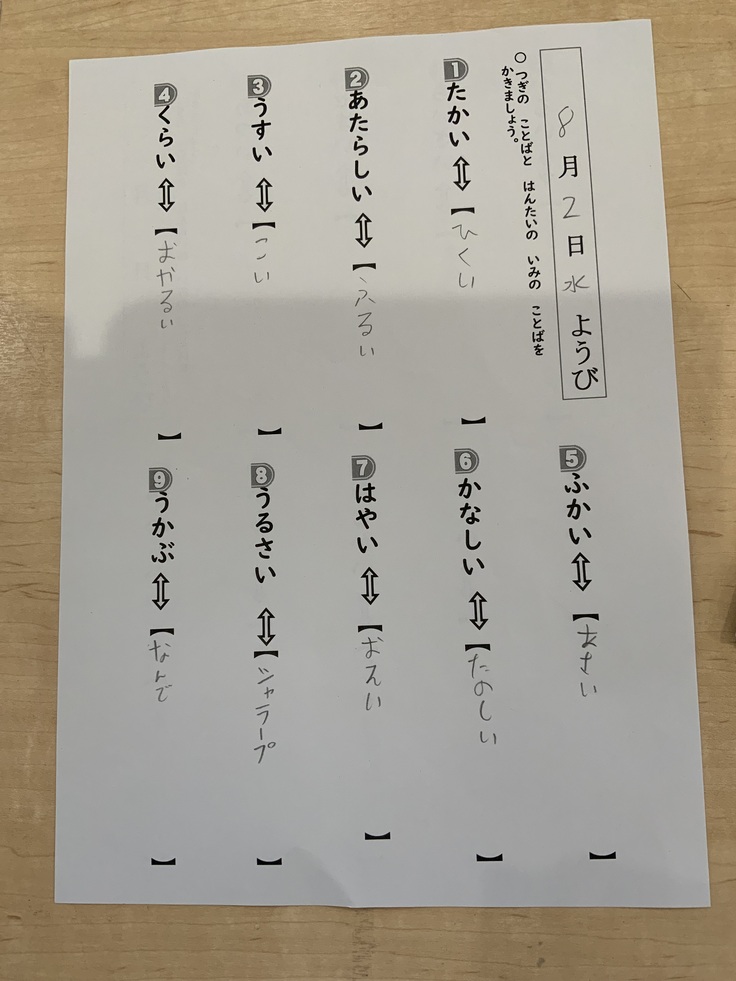 8月2日水ようび
○つぎの ことばと はんたいの いみの ことばを
かきましょう。
1 たかい⇔【ひくい】
2 あたらしい⇔【ふるい】
3 うすい⇔【こい】
4 くらい⇔【あかるい】
5 ふかい⇔【あさい】
6 かなしい⇔【たのしい】
7 はやい⇔【おそい】
8 うるさい⇔【シャラープ】
9 うかぶ⇔【なんで】